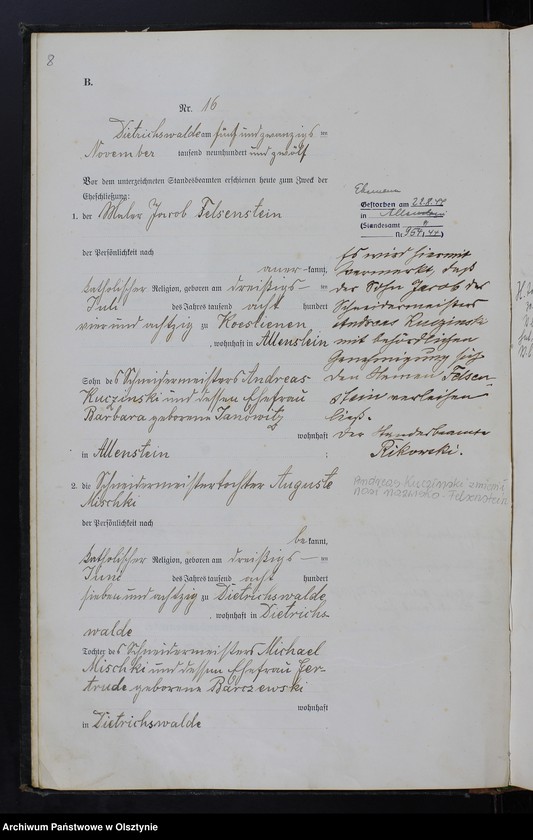 8
B.
Nr. 16
Dietrichswalde am fünf und zwanzigs ten
November tausend neunhundert und zwölf
Vor dem unterzeichneten Standesbeamten erschienen heute zum Zweck der
Eheschließung:
1. der Maler Jacob Felsenstein
der Persönlichkeit nach
aner kannt,
katholischer Religion, geboren am dreißigs ten
Juli des Jahres tausend acht hundert
vier und achtzig zu Koestienen
, wohnhaft in Allenstein
Sohn des Schneidermeisters Andreas
Kuczinski und dessen Ehefrau
Barbara geborene Janowitz
wohnhaft
in Allenstein ;
2. die Schneidermeistertochter Auguste
Mischki
der Persönlichkeit nach
be kannt,
katholischer Religion, geboren am dreißigs ten
Juni des Jahres tausend acht hundert
sieben und achtzig zu Dietrichswalde
, wohnhaft in Dietrichs-
walde
Tochter des Schneidermeisters Michael
Mischki und dessen Ehefrau Ger-
trude geborene Barczewski
wohnhaft
in Dietrichswalde
Ehemann
Gestorben am 22.8.44
in Allenstein
(Standesamt
Nr. 954/44)
Es wird hiermit
vermerkt, daß
der Sohn Jacob des
Schneidermeisters
Andreas Kuczinski
mit behördlichen
Genehmigung sich
den Namen Felsen-
stein verleihen
ließ.
Der Standesbeamte
Rikowski.
Andreas Kuczinski zmienił
nazwisko - Felsenstein
Archiwum Państwowe w Olsztynie